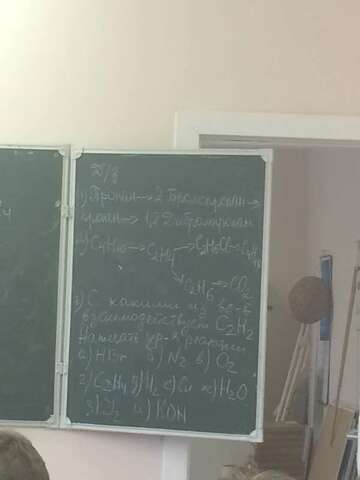 Д/з
1) Пропен → 2 бромпропан →
пропен → 1,2 Дибромпропан
2) C4H10 → C2H4 → C2H5Cl → C4H10
→ C2H6 → CO2
3) С какими из в-в
взаимодействует C2H2
Написать ур-я реакции
а) HBr б) N2 в) O2
г) C2H4 д) H2 е) Cu ж) H2O
з) J2 и) KOH